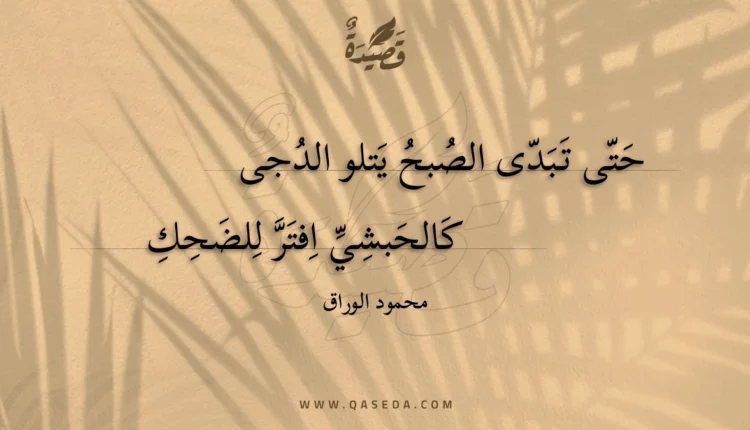 قَصِيْدَةٌ
حَتّى تَبَدّى الصُبحُ يَتلو الدُجى
كَالحَبشِيِّ اِفتَرَّ لِلضَحِكِ
محمود الوراق
WWW.QASEDA.COM